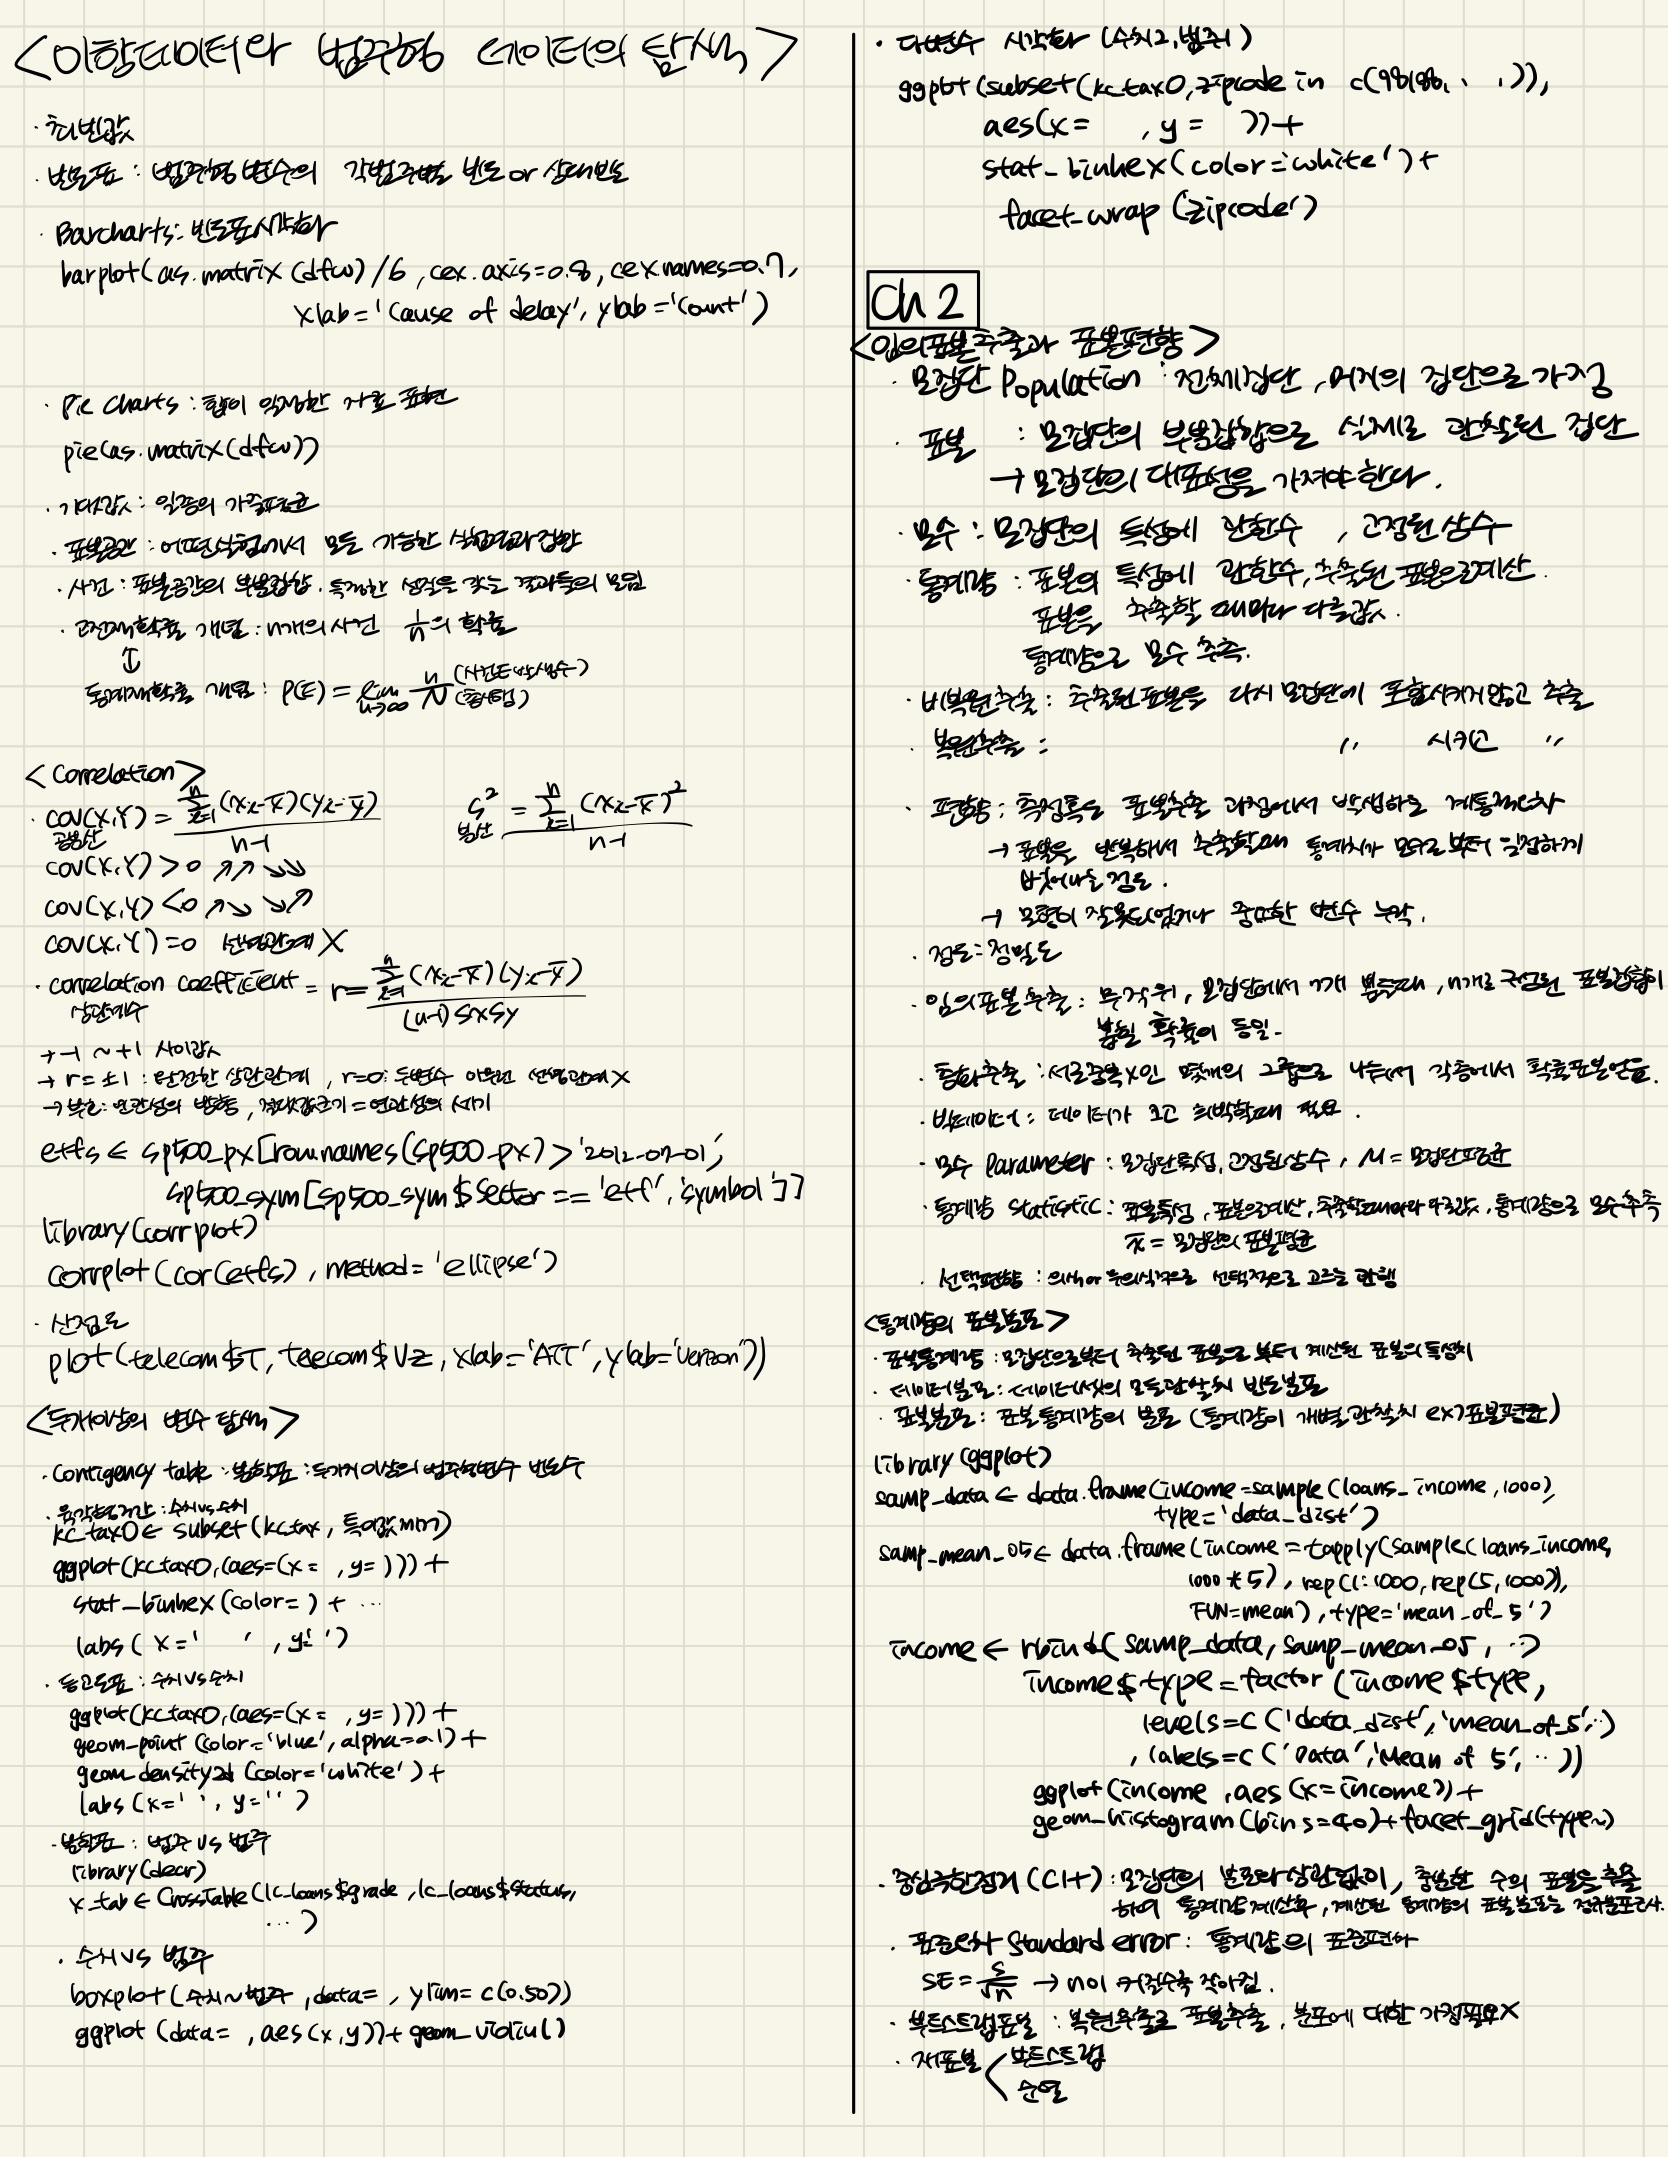 <이항데이터와 범주형 데이터의 탐색>
· 최빈값
· 빈도표 : 범주형 변수의 각범주별 빈도 or 상대빈도
· Barcharts : 빈도표시각화
barplot(as.matrix(dfw)/6, cex.axis=0.8, cex.names=0.7,
xlab='Cause of delay', ylab='Count')
· Pie Charts : 합이 일정한 자료 표현
pie(as.matrix(dfw))
· 기대값 : 일종의 가중평균
· 표본공간 : 어떤실험에서 모든 가능한 실험결과집합
· 사건 : 표본공간의 부분집합. 특정한 성질을 갖는 결과들의 모임
· 고전적확률 개념 : n개의 사건 1/n의 확률
↕
통계적확률 개념 : P(E) = lim n→∞ n/N (사건E발생수) (총시행)
<Correlation>
· cov(X,Y) = n Σ i=1 (xi-x̄)(yi-ȳ) / n-1 s² = n Σ i=1 (xi-x̄)² / n-1
공분산 분산
cov(X,Y) >0 ↗↗ ↘↘
cov(X,Y) <0 ↗↘ ↘↗
cov(X,Y) =0 선형관계 X
· correlation coefficient = r = n Σ i=1 (xi-x̄)(yi-ȳ) / (n-1)SxSy
상관계수
→ -1 ~ +1 사이값
→ r= ±1 : 완전한 상관관계, r=0: 두변수 아무런 선형관계X
→ 부호: 연관성의 방향, 절대값크기 = 연관성의 세기
etfs ← sp500_px[row.names(sp500_px) > '2012-07-01',
sp500_sym[sp500_sym$sector == 'etf', 'symbol']]
library(corrplot)
corrplot(cor(etfs), method= 'ellipse')
· 산점도
plot(telecom$T, telecom$VZ, xlab='ATT', ylab='Verizon')
<두개이상의 변수 탐색>
· Contigency table : 분할표 : 두가지이상의 범주형변수 빈도수
· 육각형구간 : 수치vs수치
kc_tax0 ← subset(kc_tax, 특이값처리)
ggplot(kc_tax0, (aes=(x= ,y= ))) +
stat_binhex(color= ) + ...
labs( x=' ' , y=' ')
· 등고도표 : 수치vs수치
ggplot(kc_tax0, (aes=(x= ,y= ))) +
geom_point (color='blue', alpha=0.1) +
geom_density2d (color='white') +
labs (x=' ', y=' ')
· 분할표 : 범주 vs 범주
library(descr)
x_tab ← CrossTable(lc_loans$grade, lc_loans$status,
... )
· 수치 vs 범주
boxplot(수치~범주, data= , ylim= c(0.50))
ggplot (data= , aes(x,y)) + geom_violin()
· 다변수 시각화 (수치2, 범주1)
ggplot(subset(kc_tax0, zipcode in c(98188, . . )),
aes(x= , y= )) +
stat_binhex(color='white') +
facet_wrap ('zipcode')
Ch 2
<임의표본추출과 표본편향>
· 모집단 Population : 전체집단, 미지의 집단으로 가정
· 표본 : 모집단의 부분집합으로 실제로 관찰된 집단
→ 모집단의 대표성을 가져야한다.
· 모수 : 모집단의 특성에 관한수, 고정된 상수
· 통계량 : 표본의 특성에 관한수, 추출된 표본으로계산.
표본을 추출할 때마다 다른값.
통계량으로 모수 추측.
· 비복원추출 : 추출된표본을 다시 모집단에 포함시키지않고 추출
· 복원추출 : 〃 시키고 〃
· 편향 : 측정혹은 표본추출 과정에서 발생하는 계통적오차
→ 표본을 반복해서 추출할때 통계치가 모수로 부터 일정하게
벗어나는 정도.
→ 모형이 잘못되었거나 중요한 변수 누락.
· 정도=정밀도
· 임의표본추출 : 무작위, 모집단에서 n개 뽑을때, n개로 구성된 표본집합이
뽑힐 확률이 동일.
· 층화추출 : 서로중복X인 몇개의 그룹으로 나눠서 각층에서 확률표본얻음.
· 빅데이터 : 데이터가 크고 희박할때 필요.
· 모수 parameter : 모집단특성, 고정된상수, μ = 모집단평균
· 통계량 statistic : 표본특성, 표본으로계산, 추출할때마다 다른값, 통계량으로 모수추측
x̄ = 모집단의 표본평균
· 선택편향 : 의식or무의식적으로 선택적으로 고르는 관행
<통계량의 표본분포>
· 표본통계량 : 모집단으로부터 추출된 표본으로 부터 계산된 표본의 특성치
· 데이터분포 : 데이터셋의 모든관찰치 빈도분포
· 표본분포 : 표본통계량의 분포 (통계량이 개별관찰치 ex>표본평균)
library (ggplot)
samp_data ← data.frame(income=sample(loans_income, 1000),
type='data_dist')
samp_mean_05 ← data.frame(income = tapply(sample(loans_income,
1000*5), rep(1:1000, rep(5,1000)),
FUN=mean), type='mean_of_5')
income ← rbind( samp_data, samp_mean_05, ..)
income$type = factor (income$type,
levels=c('data_dist', 'mean_of_5', ..)
, labels=c('Data', 'Mean of 5', .. ))
ggplot(income, aes (x=income)) +
geom_histogram(bins=40) + facet_grid(type~)
· 중심극한정리 (Clt) : 모집단의 분포와상관없이, 충분한 수의 표본을 추출
하여 통계량 계산후, 계산된 통계량의 표본분포는 정규분포근사.
· 표준오차 Standard error : 통계량의 표준편차
SE = s/√n → n이 커질수록 작아짐.
· 부트스트랩표본 : 복원추출로 표본추출, 분포에 대한 가정필요X
· 재표본 < 부트스트랩
순열